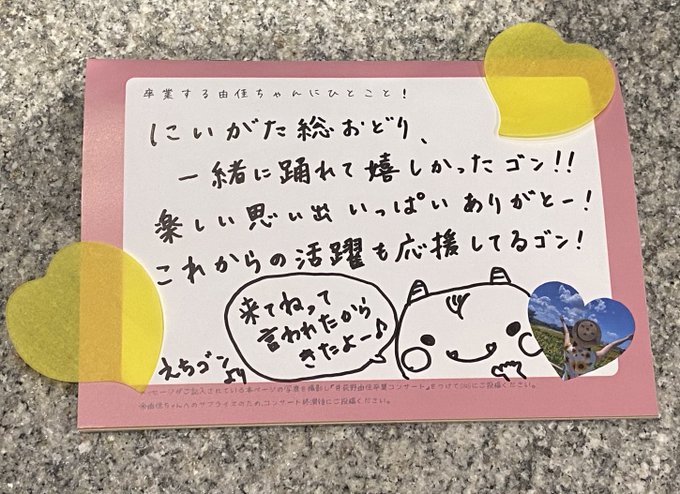 卒業する由佳ちゃんにひとこと！
にいがた総おどり、
一緒に踊れて嬉しかったゴン!!
楽しい思い出いっぱいありがとー!
これからの活躍も応援してるゴン!
来てねって
言われたから
きたよー♪
えちゴン
より
メッセージがご記入されている本ページの写真を撮影し「#荻野由佳卒業コンサート」をつけてSNSにご投稿ください。
※由佳ちゃんへのサプライズのため、コンサート終演後にご投稿ください。